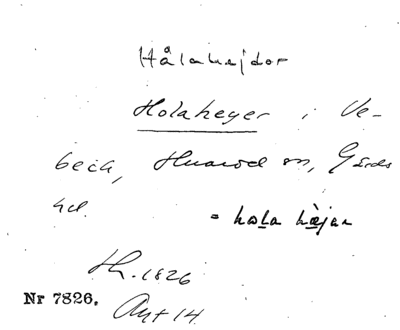 Hålahejdor
Holaheyer i Ve-
beck, Huarod sn, Gärds
hd.
= hola hæjar
Lh. 1826
Nr 7826. Avt 14